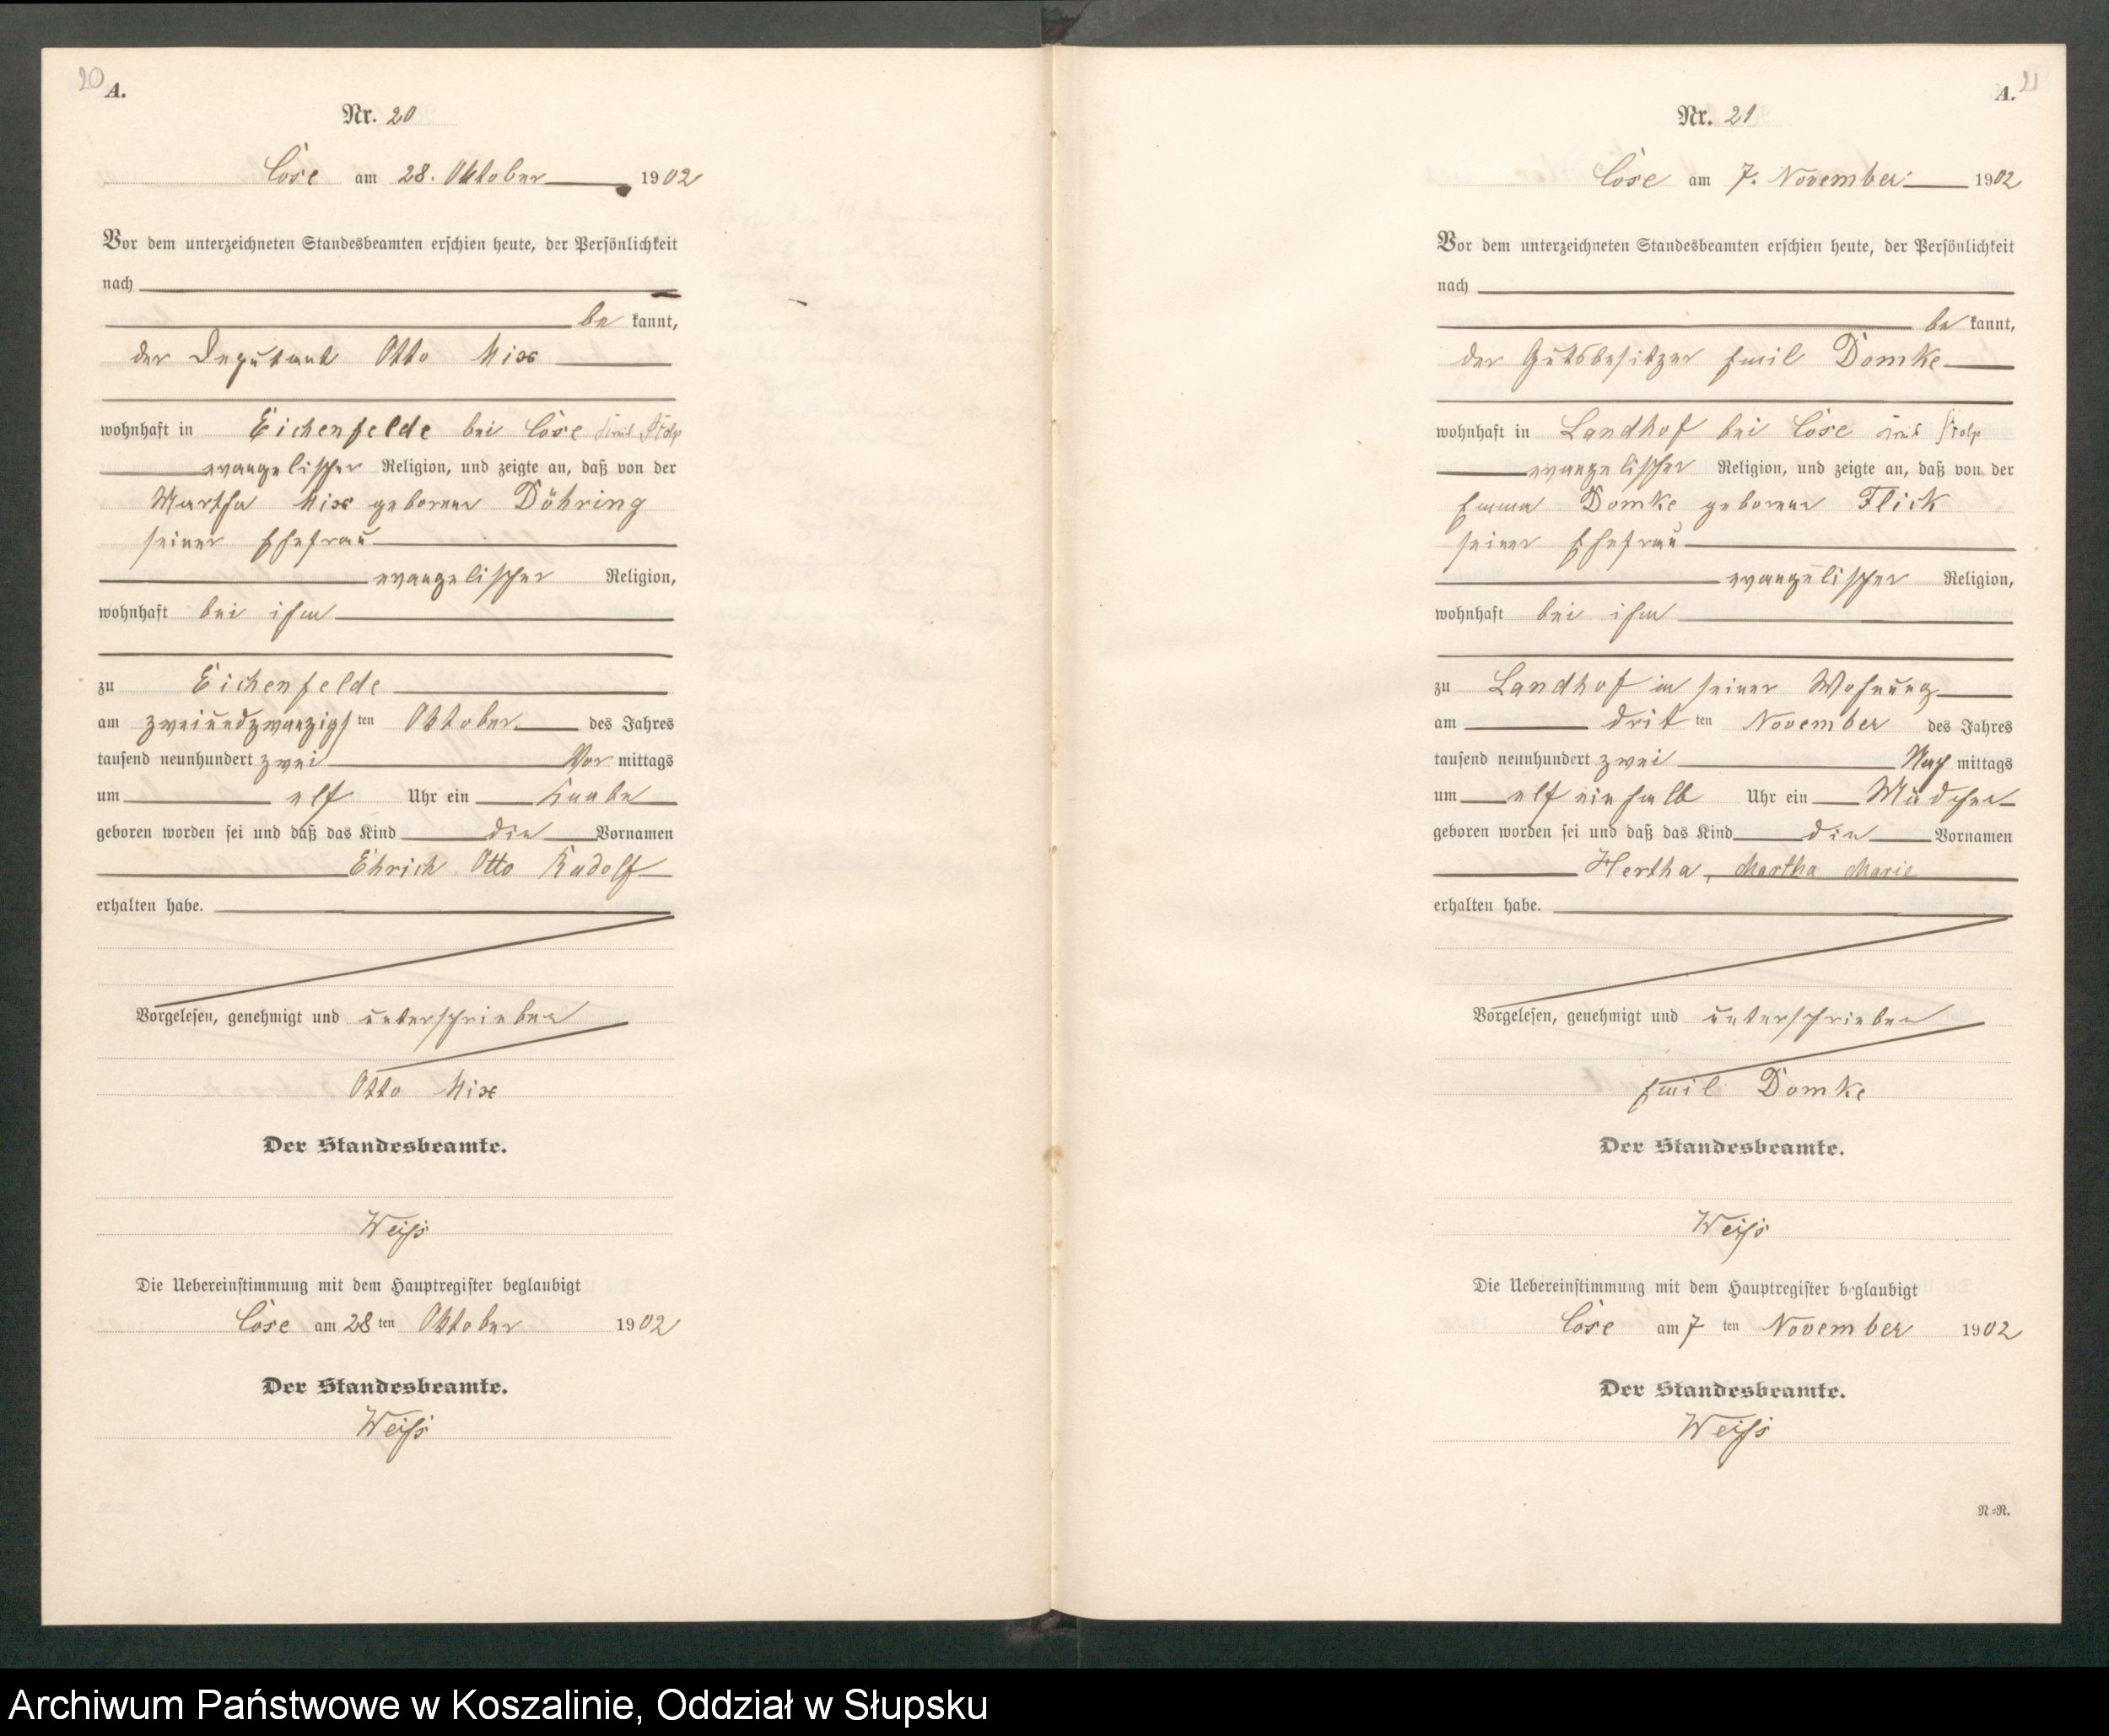 20
A.
Nr. 20
Cose am 28. Oktober 1902
Vor dem unterzeichneten Standesbeamten erschien heute, der Persönlichkeit
nach
be kannt,
der Deputant Otto Mix
wohnhaft in Eichenfelde bei Cose Kreis Stolp
evangelischer Religion, und zeigte an, daß von der
Martha Mix geborene Döhring
seiner Ehefrau
evangelischer Religion,
wohnhaft bei ihm
zu Eichenfelde
am zweiundzwanzigsten Oktober des Jahres
tausend neunhundert zwei Vor mittags
um elf Uhr ein Knabe
geboren worden sei und daß das Kind die Vornamen
Ehrich Otto Rudolf
erhalten habe.
Vorgelesen, genehmigt und unterschrieben
Otto Mix
Der Standesbeamte.
Weiss
Die Uebereinstimmung mit dem Hauptregister beglaubigt
Cose am 28 ten Oktober 1902
Der Standesbeamte.
Weiss
21
A.
Nr. 21
Cose am 7. November 1902
Vor dem unterzeichneten Standesbeamten erschien heute, der Persönlichkeit
nach
be kannt,
der Gutsbesitzer Emil Domke
wohnhaft in Landhof bei Cose Kreis Stolp
evangelischer Religion, und zeigte an, daß von der
Emma Domke geborene Flick
seiner Ehefrau
evangelischer Religion,
wohnhaft bei ihm
zu Landhof in seiner Wohnung
am dritten November des Jahres
tausend neunhundert zwei Nach mittags
um elf einhalb Uhr ein Mädchen
geboren worden sei und daß das Kind die Vornamen
Hertha, Martha Marie
erhalten habe.
Vorgelesen, genehmigt und unterschrieben
Emil Domke
Der Standesbeamte.
Weiss
Die Uebereinstimmung mit dem Hauptregister beglaubigt
Cose am 7 ten November 1902
Der Standesbeamte.
Weiss
N=R.
Archiwum Państwowe w Koszalinie, Oddział w Słupsku